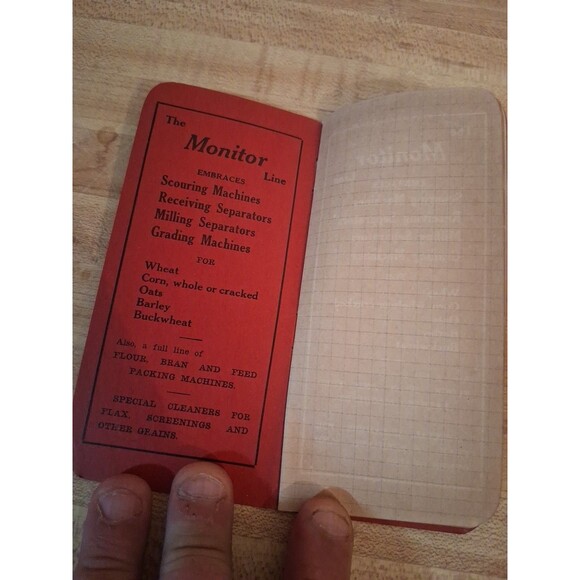 The
Monitor
Line
EMBRACES
Scouring Machines
Receiving Separators
Milling Separators
Grading Machines
FOR
Wheat
Corn, whole or cracked
Oats
Barley
Buckwheat
Also, a full line of
FLOUR, BRAN AND FEED
PACKING MACHINES.
SPECIAL CLEANERS FOR
FLAX, SCREENINGS AND
OTHER GRAINS.